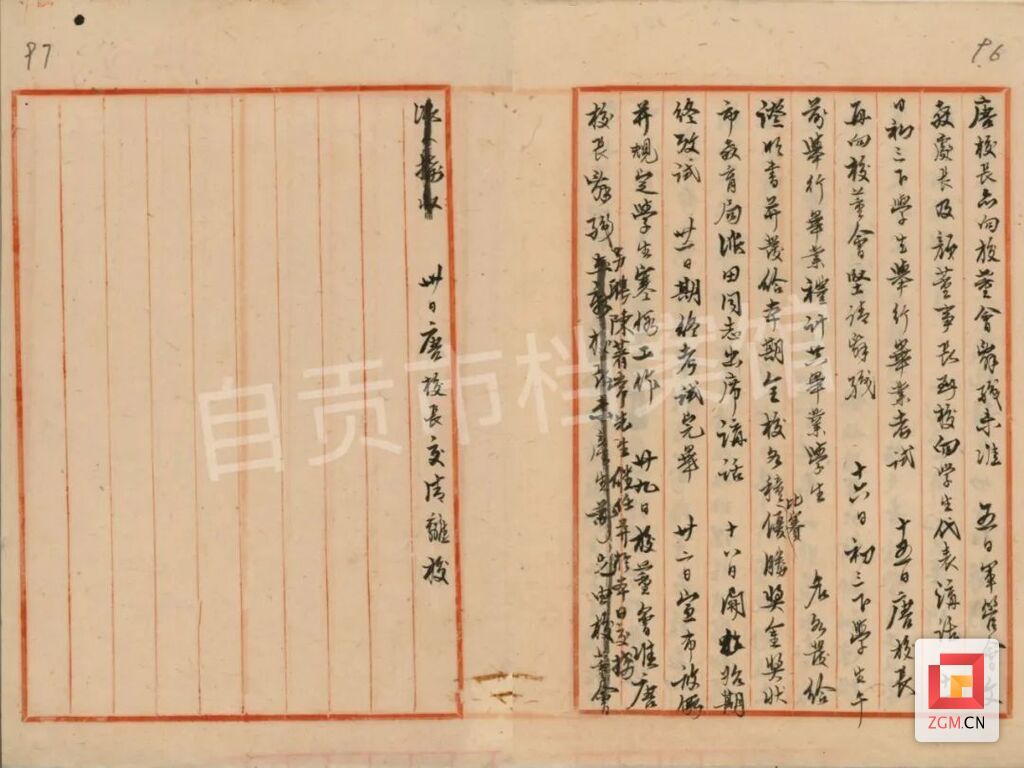 96
唐校長亦向校董會辭職未准 五日軍管會文
教處長及顏董事長到校向學生代表講話
日初三下學生舉行畢業考試 十五日唐校長
再向校董會堅請辭職 十六日初三下學生午
前舉行畢業禮計共畢業學生 名各發給
證明書并發給本期全校各種比賽優勝獎金獎狀
市教育局 田同志出席講話 十八日開始期
終考試 廿一日期終考試完畢 廿二日宣布放假
并規定學生寒假工作 廿九日校董會准唐
校長辭職另聘陳著常先生繼任并於本日交接
校董會
97
卅日唐校長交清離校
自贡市档案馆
ZGM.CN